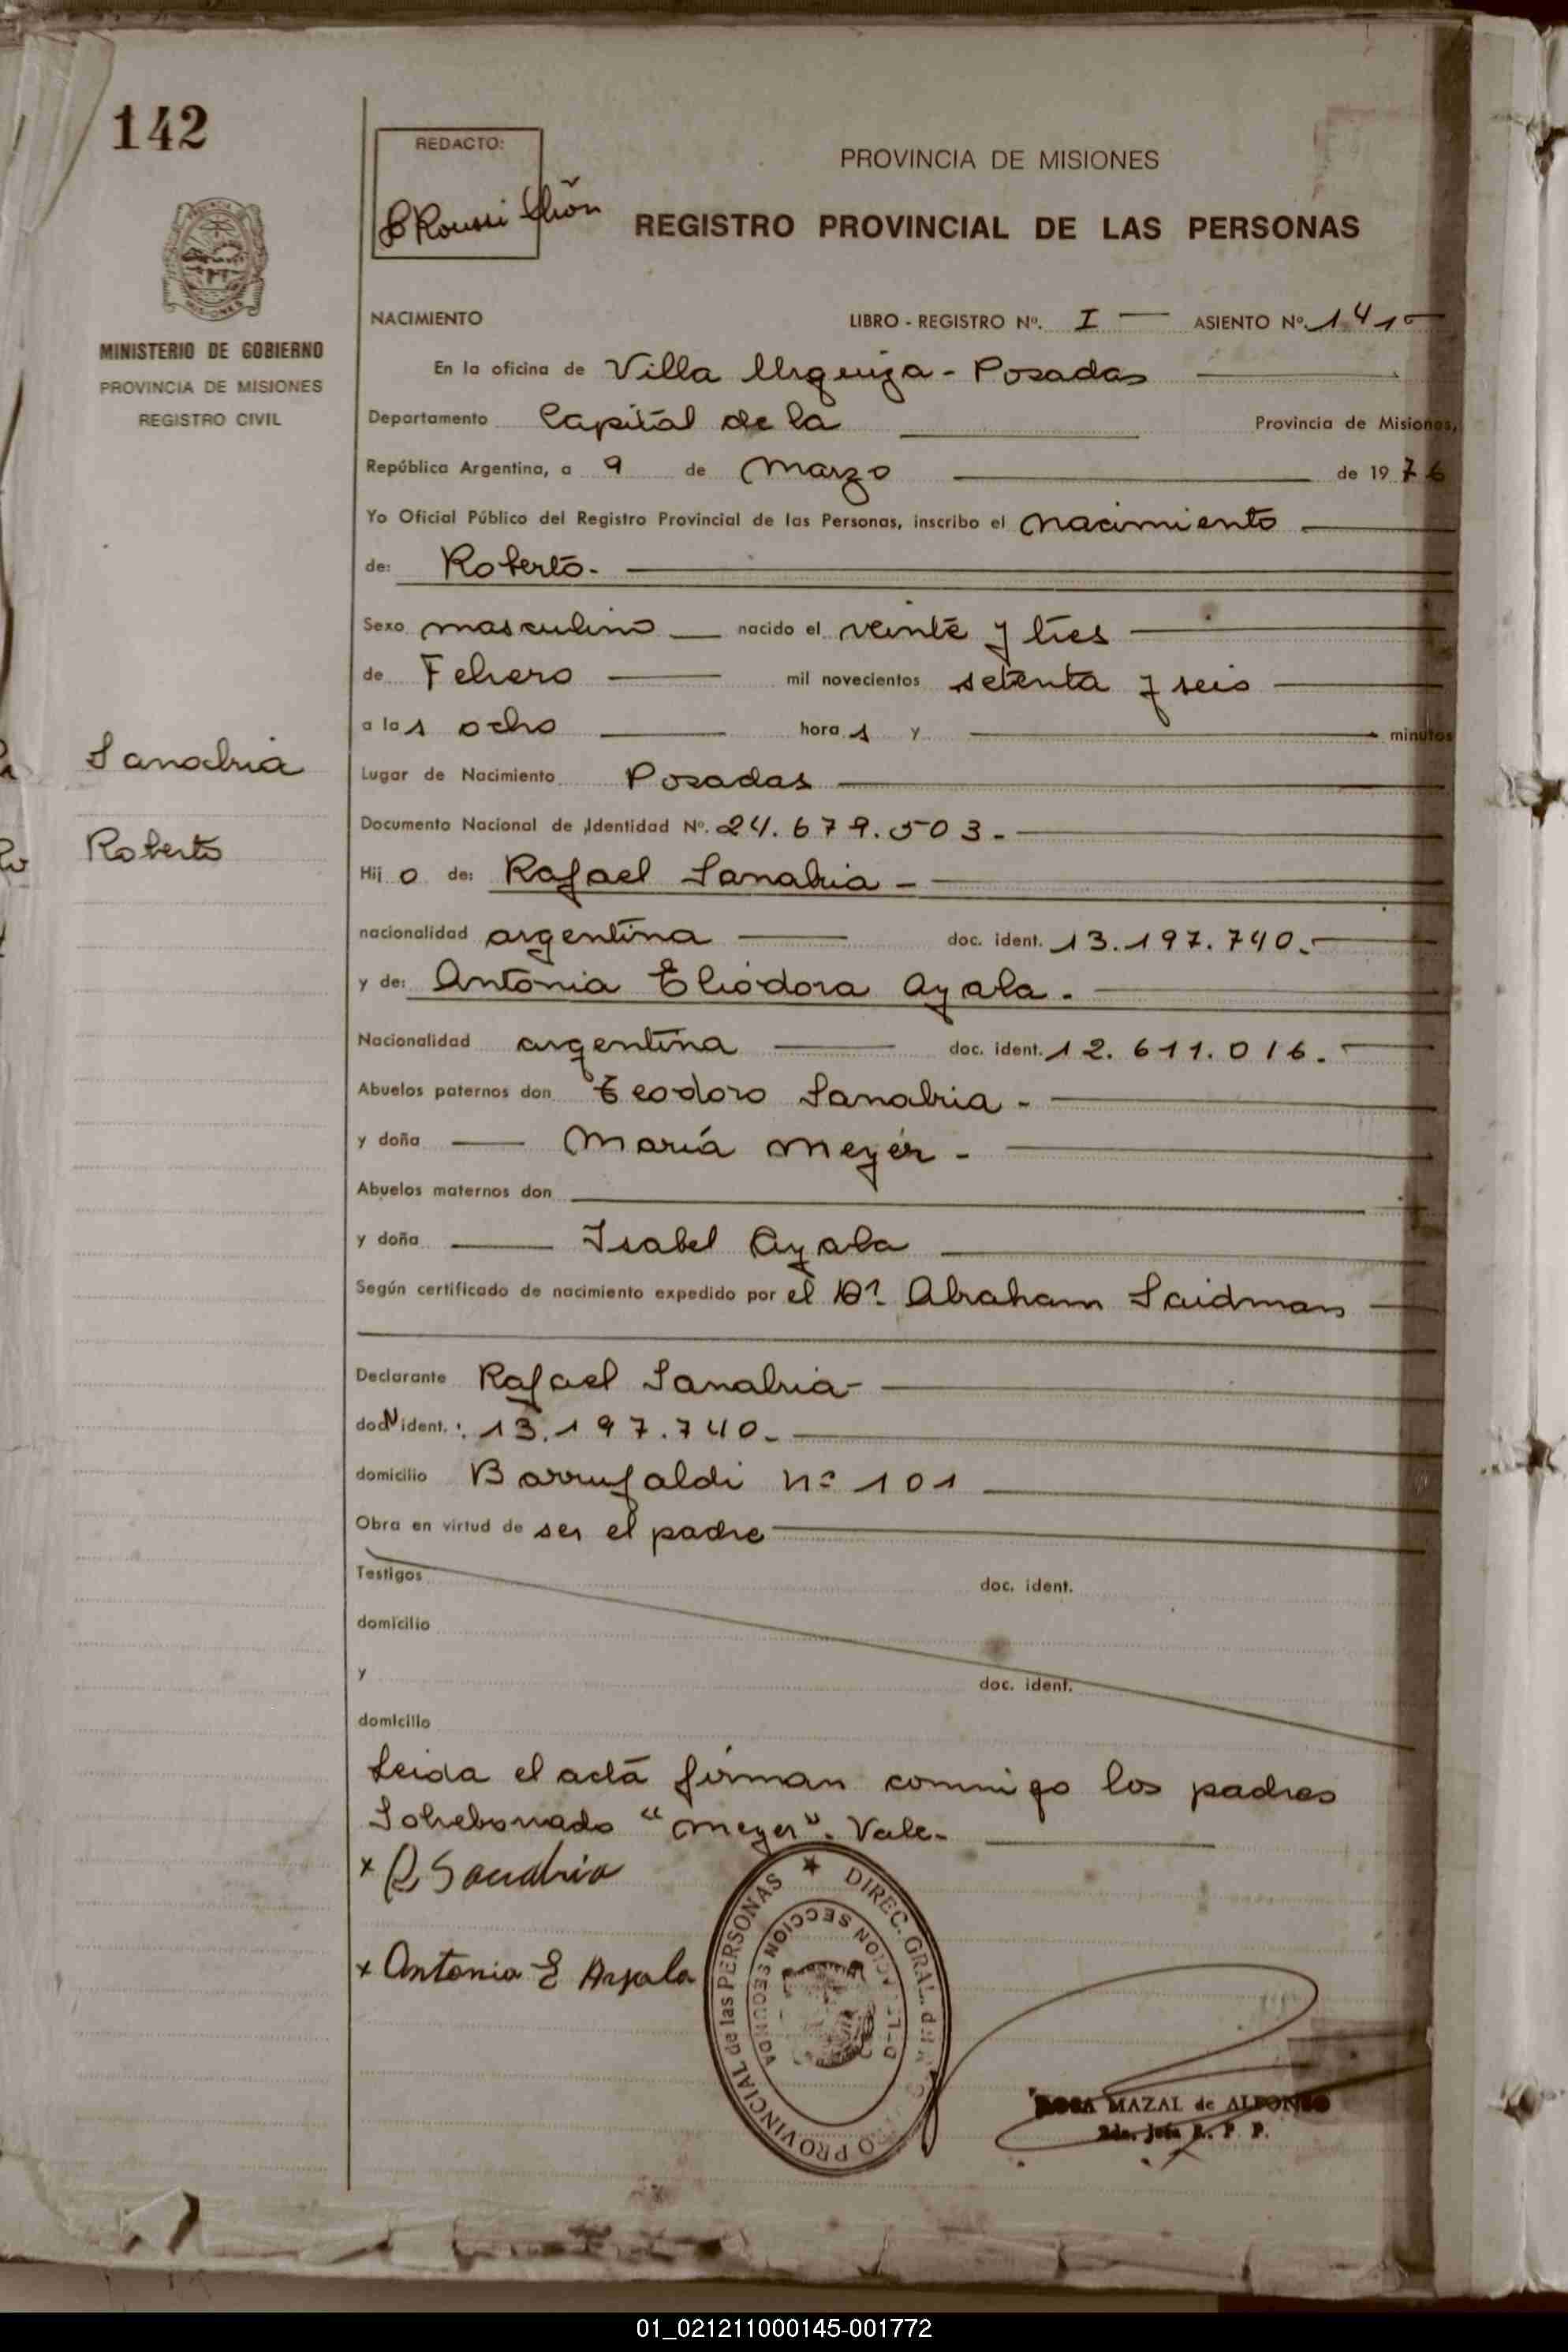 142
REDACTO:
PROVINCIA DE MISIONES
REGISTRO PROVINCIAL DE LAS PERSONAS
NACIMIENTO LIBRO - REGISTRO Nº. I ASIENTO Nº. 141
MINISTERIO DE GOBIERNO
PROVINCIA DE MISIONES
REGISTRO CIVIL
En la oficina de Villa Urquiza - Posadas
Departamento Capital de la Provincia de Misiones,
República Argentina, a 9 de Marzo de 1976
Yo Oficial Público del Registro Provincial de las Personas, inscribo el nacimiento
de: Roberto.
Sexo masculino nacido el veinte y tres
de Febrero mil novecientos setenta y seis
a las ocho horas y minutos
Sanabria
Lugar de Nacimiento Posadas
Roberto
Documento Nacional de Identidad Nº. 24.679.503.-
Hijo de: Rafael Sanabria -
nacionalidad argentina doc. ident. 13.197.740.-
y de: Antonia Eliodora Ayala.
Nacionalidad argentina doc. ident. 12.611.016.
Abuelos paternos don Teodoro Sanabria -
y doña María Meyer -
Abuelos maternos don
y doña Isabel Ayala
Según certificado de nacimiento expedido por el Dr. Abraham Saidman
Declarante Rafael Sanabria -
doc N ident. : 13.197.740.-
domicilio Barrufaldi nº 101
Obra en virtud de ser el padre
Testigos doc. ident.
domicilio
y doc. ident.
domicilio
Leida el acta firman conmigo los padres
Sobreborrado "Meyer". Vale.-
x R Sanabria
x Antonia E Ayala
DIREC. GRAL. del REGISTRO PROVINCIAL de las PERSONAS
DELEGACION SECCION SEGUNDA
ROSA MAZAL de ALFONSO
2da. Jefa R. P. P.
01_021211000145-001772